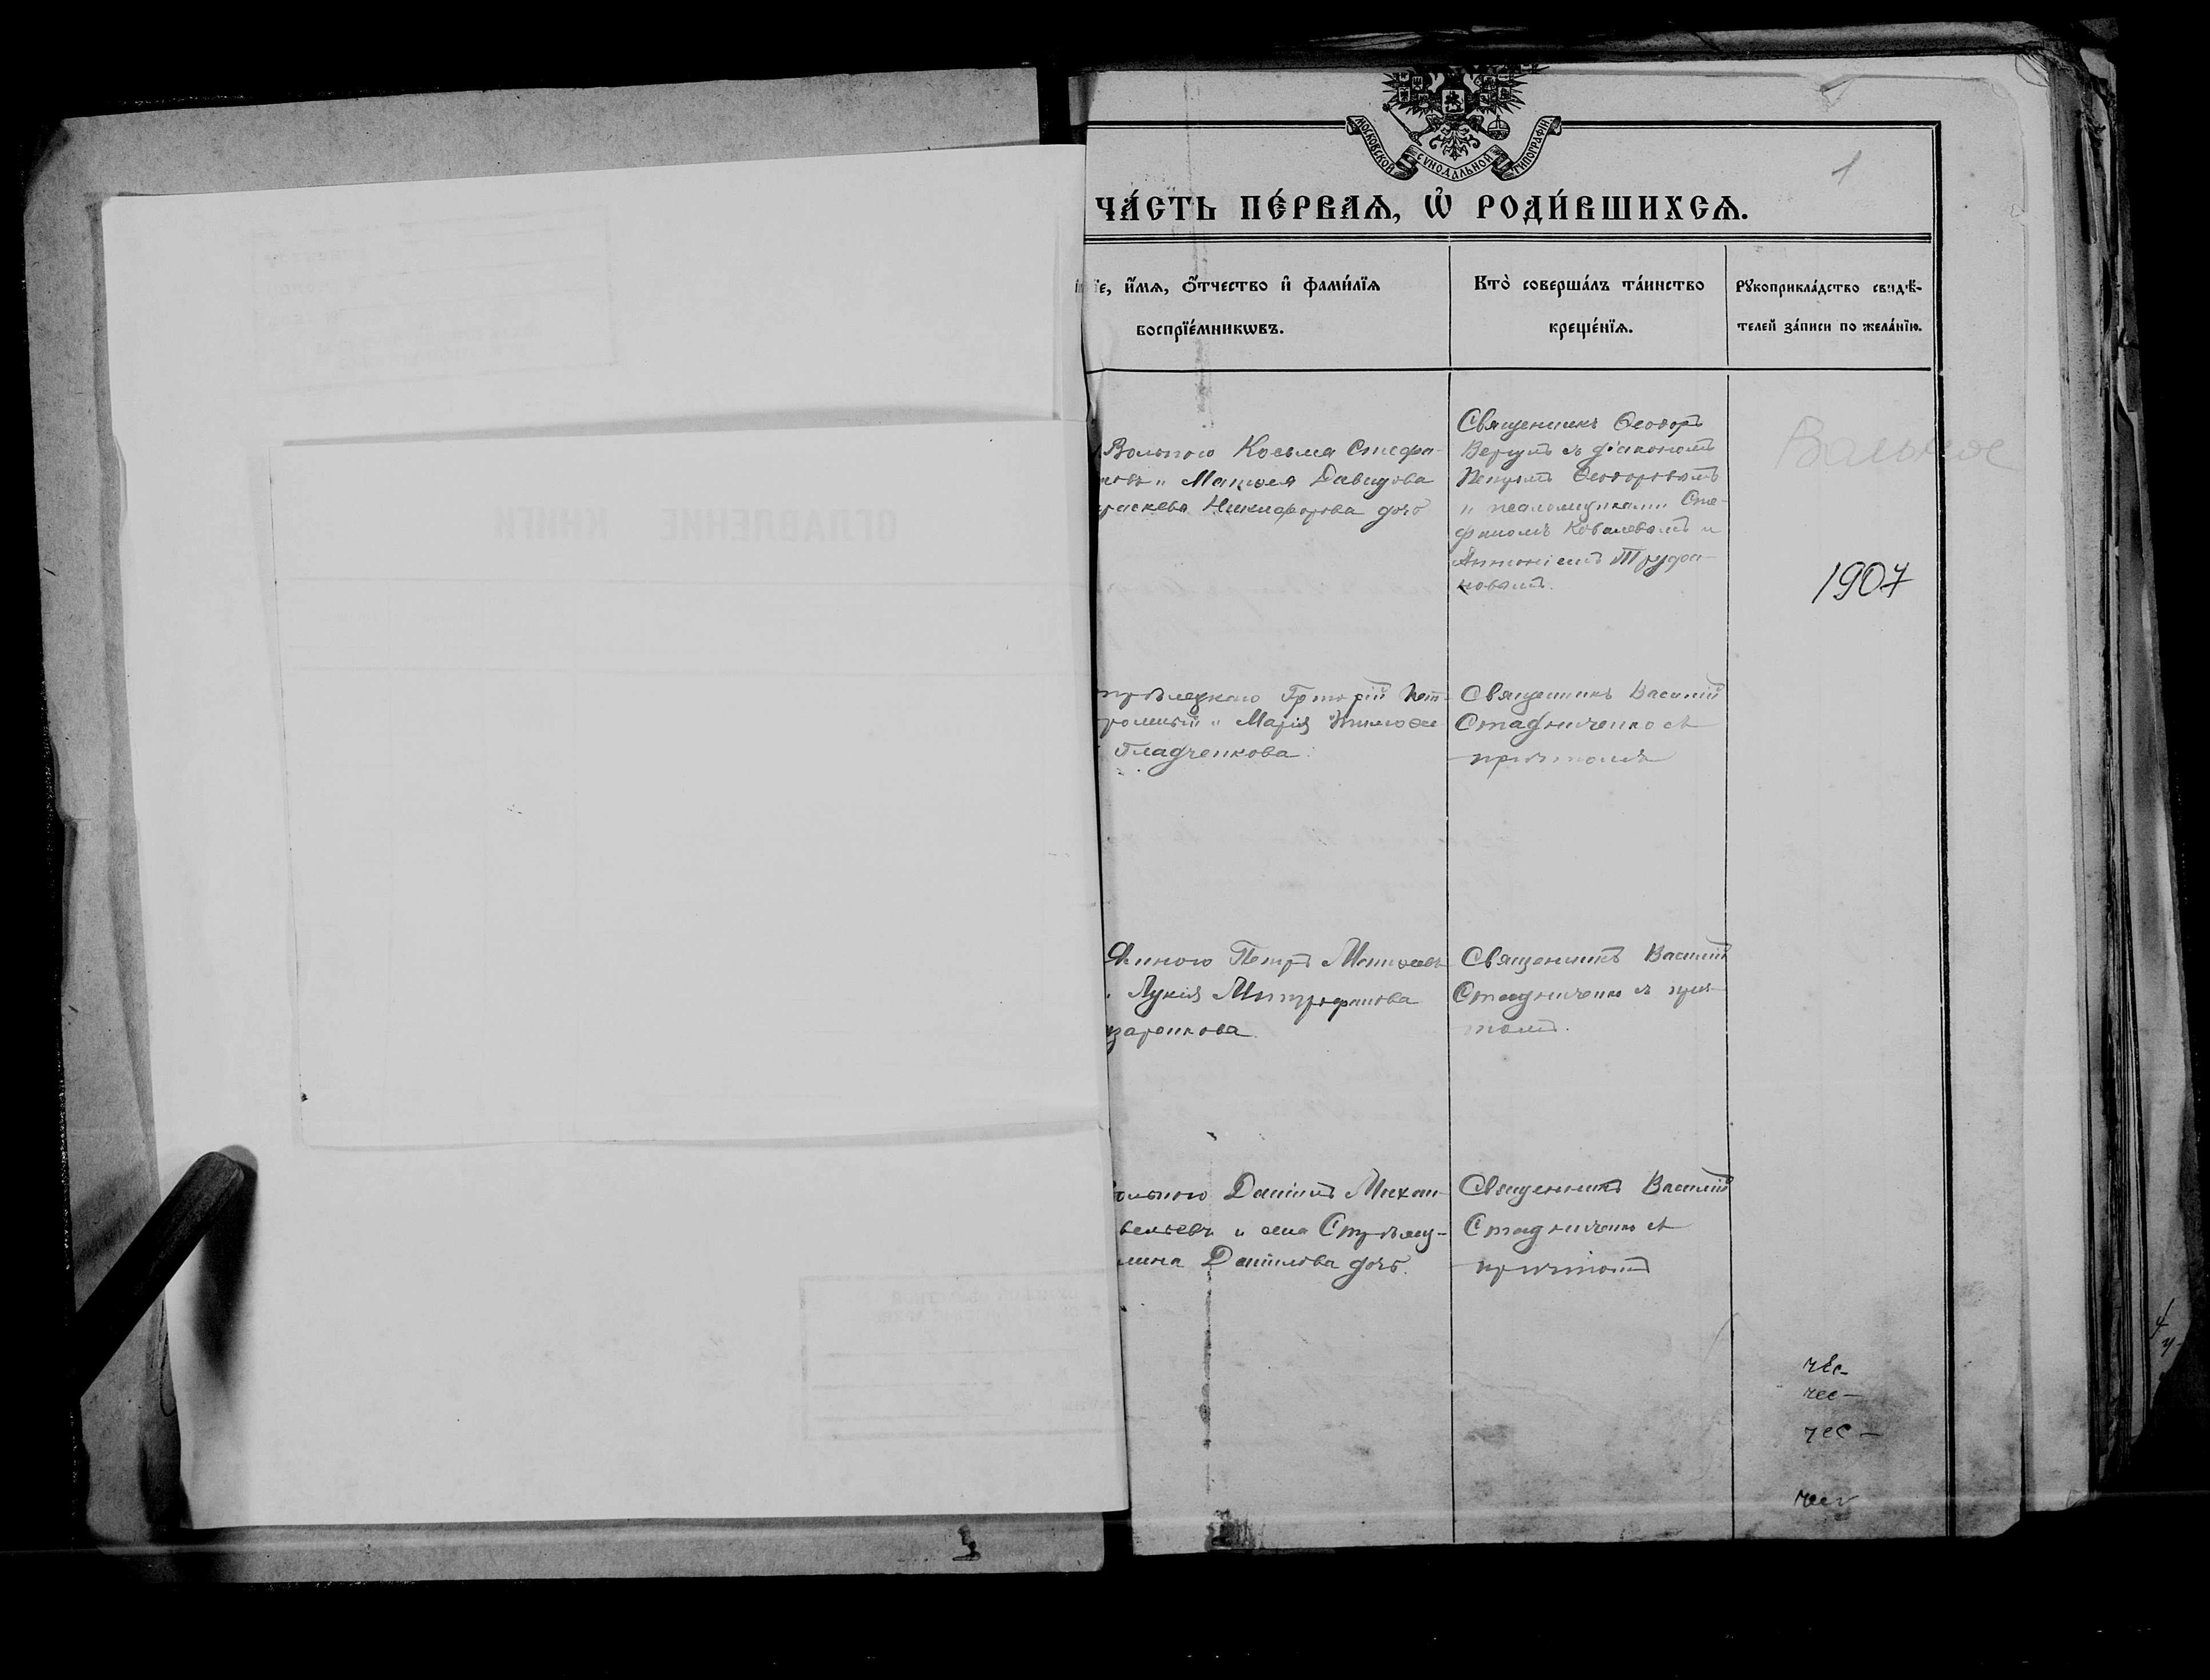 МОСКОВСКОЙ СѴНОДАЛЬНОЙ ТИПОГРАФІИ
1
ЧА́СТЬ ПЕ́РВАѦ, Ѡ҆ РОДИ́ВШИХСѦ.
їе, и҆́мѧ, ѻ҆́тчество и҆ фами́лїѧ
воспрїе́мникѡвъ.
Кто̀ соверша́лъ та́инство
креще́нїѧ.
Рꙋкоприкла́дство свидѣ́-
телей за́писи по жела́нїю.
Вольного Косьма Стефа-
новъ и Матѳея Давидова
раскева Никифорова дочь
Священникъ Ѳеодоръ
съ діакономъ
Петромъ Ѳеодоровымъ
и псаломщиками Сте-
фаномъ Ковалевымъ и
Антоніемъ Труфа-
новымъ.
Вольное
1907
Григорій Пет-
Марія Тимоѳе
Гладченкова.
Священникъ Василій
Стадниченко съ
причтомъ
Петръ Матѳеевъ
Лукія Митрофанова
заренкова
Священникъ Василій
Стадниченко съ прич-
томъ.
ольного Даніилъ Михаи-
Данилова дочь.
Священникъ Василій
Стадниченко съ
причтомъ
чес-
чес-
чес-
ОГЛАВЛЕНИЕ КНИГИ